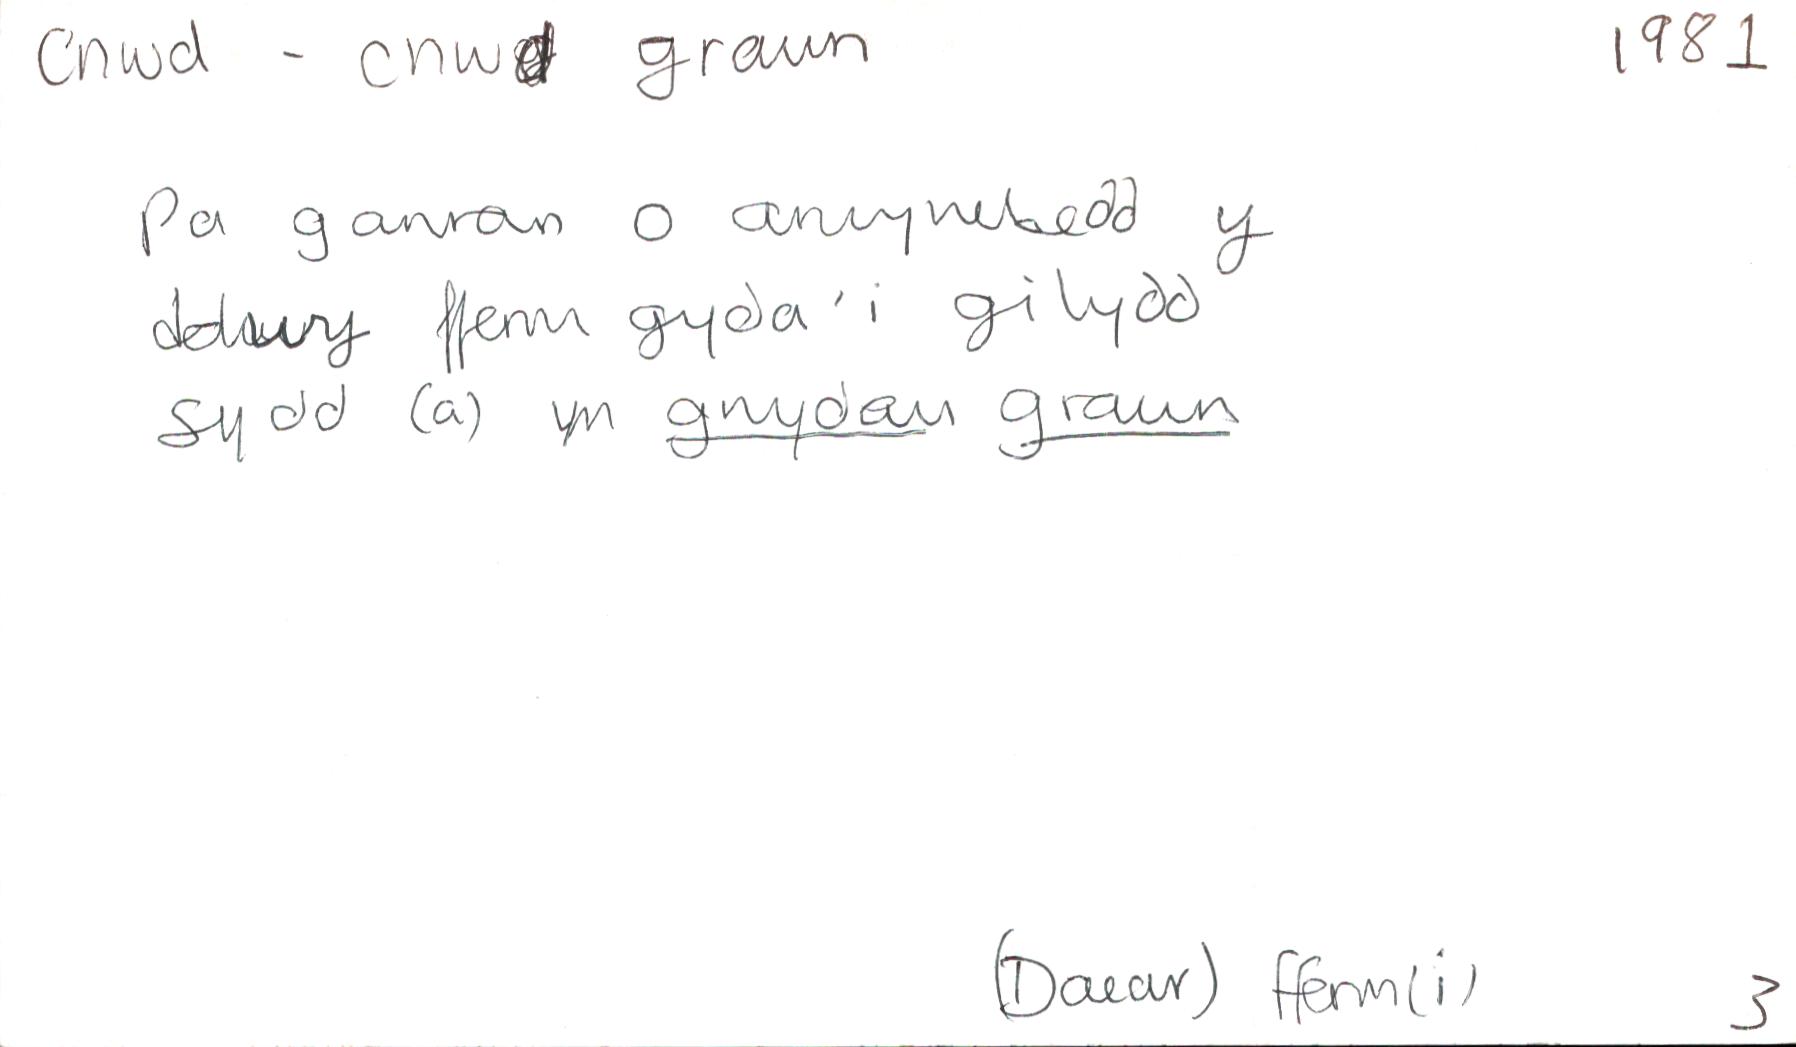 Cnwd - cnwd graun 1981
Pa ganran o arwynebedd y
ddwy fferm gyda'i gilydd
sydd (a) yn gnydau graun
(Daear) fferm(i) 3